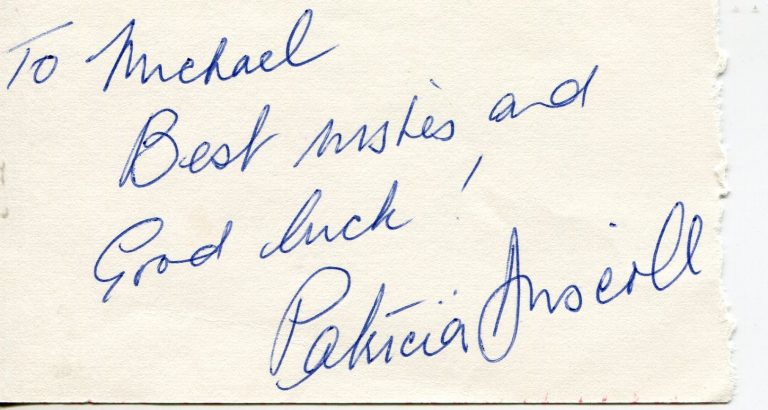 To Michael
Best wishes and
Good luck!
Patricia Driscoll